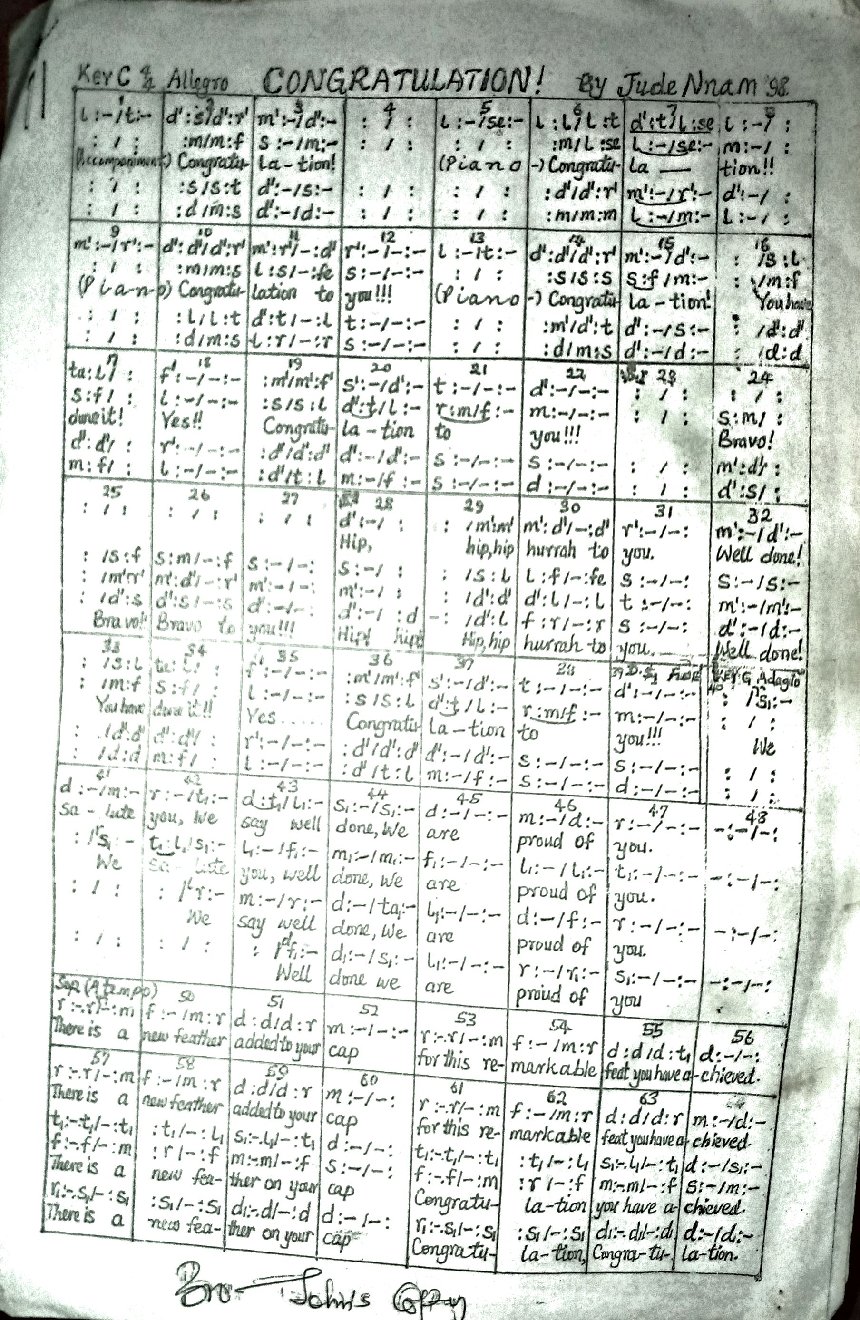 Key C 4/4 Allegro CONGRATULATION! By Jude Nnam '98
1 2 3 4 5 6 7 8
l :-/t:- d':s/d':r' m':-/d':- : / : l :-/se:- l :l/l :t d':t/l :se l :-/ :
: / : :m/m:f s :-/m:- : / : : / : :m/l:se l :-/se:- m:-/ :
(Accompaniment-) Congratu- la-tion! (Piano-) Congratu- la — tion!!
: / : :s/s:t d':-/s:- : / : : / : :d'/d':r' m':-/r':- d':-/ :
: / : :d/m:s d':-/d:- : / : : / : :m/m:m l:-/m:- l:-/ :
9 10 11 12 13 14 15 16
m':-/r':- d':d'/d':r' m':r'/-:d' r':-/-:- l:-/t:- d':d'/d':r' m':-/d':- : /s:l
: / : :m/m:s l:s/-:fe s:-/-:- : / : :s/s:s s:f/m:- : /m:f
(Piano) Congratu- lation to you!!! (Piano-) Congratu- la-tion! You have
: / : :l/l:t d':t/-:l t:-/-:- : / : :m'/d':t d':-/s:- : /d':d'
: / : :d/m:s l:r/-:r s:-/-:- : / : :d/m:s d':-/d:- : /d:d
17 18 19 20 21 22 23 24
ta:l/ : f':-/-:- :m'/m':f' s':-/d':- t:-/-:- d':-/-:- : / : : / :
s:f/ : l:-/-:- :s/s:l d':t/l:- r:m/f:- m:-/-:- : / : s:m/ :
done it! Yes!! Congratu- la-tion to you!!! Bravo!
d':d'/ : r':-/-:- :d'/d':d' d':-/d':- s:-/-:- s:-/-:- : / : m':d'/ :
m:f/ : l:-/-:- :d'/t:l m:-/f:- s:-/-:- d:-/-:- : / : d':s/ :
25 26 27 28 29 30 31 32
: / : : / : : / : d':-/ : : /m':m' m':d'/-:d' r':-/-: m':-/d':-
Hip, hip,hip hurrah to you. Well done!
: /s:f s:m/-:f s:-/-: s:-/ : : /s:l l:f/-:fe s:-/-: s:-/s:-
: /m':r' m':d'/-:r' m':-/-: m':-/ : : /d':d' d':l/-:l t:-/-: m':-/m':-
: /d':s d':s/-:s d':-/-: d':-/ :d -: /d':l f:r/-:r s:-/-: d':-/d:-
Bravo! Bravo to you!!! Hip! hip! Hip,hip hurrah to you. Well done!
33 34 35 36 37 38 39 D.S. Fine 40 Key G Adagio
: /s:l ta:l/ : f':-/-:- :m'/m':f' s':-/d':- t:-/-:- d':-/-:- : /s₁:-
: /m:f s:f/ : l:-/-:- :s/s:l d':t/l:- r:m/f:- m:-/-:- : / :
You have done it!! Yes...... Congratu- la-tion to you!!! We
: /d':d' d':d'/ : r':-/-:- :d'/d':d' d':-/d':- s:-/-:- s:-/-:- : / :
: /d:d m:f/ : l:-/-:- :d'/t:l m:-/f:- s:-/-:- d:-/-:- : / :
41 42 43 44 45 46 47 48
d:-/m:- r:-/t₁:- d:t₁/l₁:- s₁:-/s₁:- d:-/-:- m:-/d:- r:-/-:- -:-/-:
Sa-lute you, we say well done, we are proud of you.
: /s₁:- t₁:l₁/s₁:- l₁:-/f₁:- m₁:-/m₁:- f₁:-/-:- l₁:-/l₁:- t₁:-/-:- -:-/-:
We sa-lute you, well done, we are proud of you.
: / : : /r:- m:-/r:- d:-/ta₁:- l₁:-/-:- d:-/f:- r:-/-:- -:-/-:
We say well done, we are proud of you.
: / : : / : : /f₁:- d₁:-/s₁:- l₁:-/-:- r:-/r₁:- s₁:-/-:- -:-/-:
Well done we are proud of you
Sop (A tempo)
50 51 52 53 54 55 56
r:-.r/-:m f:-/m:r d:d/d:r m:-/-:- r:-.r/-:m f:-/m:r d:d/d:t₁ d:-/-:
There is a new feather added to your cap for this re- markable feat you have a- chieved.
57 58 59 60 61 62 63 64
r:-.r/-:m f:-/m:r d:d/d:r m:-/-: r:-.r/-:m f:-/m:r d:d/d:r m:-/d:-
There is a new feather added to your cap for this re- markable feat you have a- chieved
t₁:-.t₁/-:t₁ :t₁/-:l₁ s₁:-.l₁/-:t₁ d:-/-: t₁:-.t₁/-:t₁ :t₁/-:l₁ s₁:-.l₁/-:t₁ d:-/s₁:-
f:-.f/-:m :r/-:f m:-.m/-:f s:-/-: f:-.f/-:m :r/-:f m:-.m/-:f s:-/m:-
There is a new fea- ther on your cap Congratu- la-tion you have a- chieved.
r₁:-.s₁/-:s₁ :s₁/-:s₁ d:-.d/-:d d:-/-: r₁:-.s₁/-:s₁ :s₁/-:s₁ d:-.d/-:d d:-/d:-
There is a new fea- ther on your cap Congratu- la-tion, Congra-tu- la-tion.
Bro- John's Copy